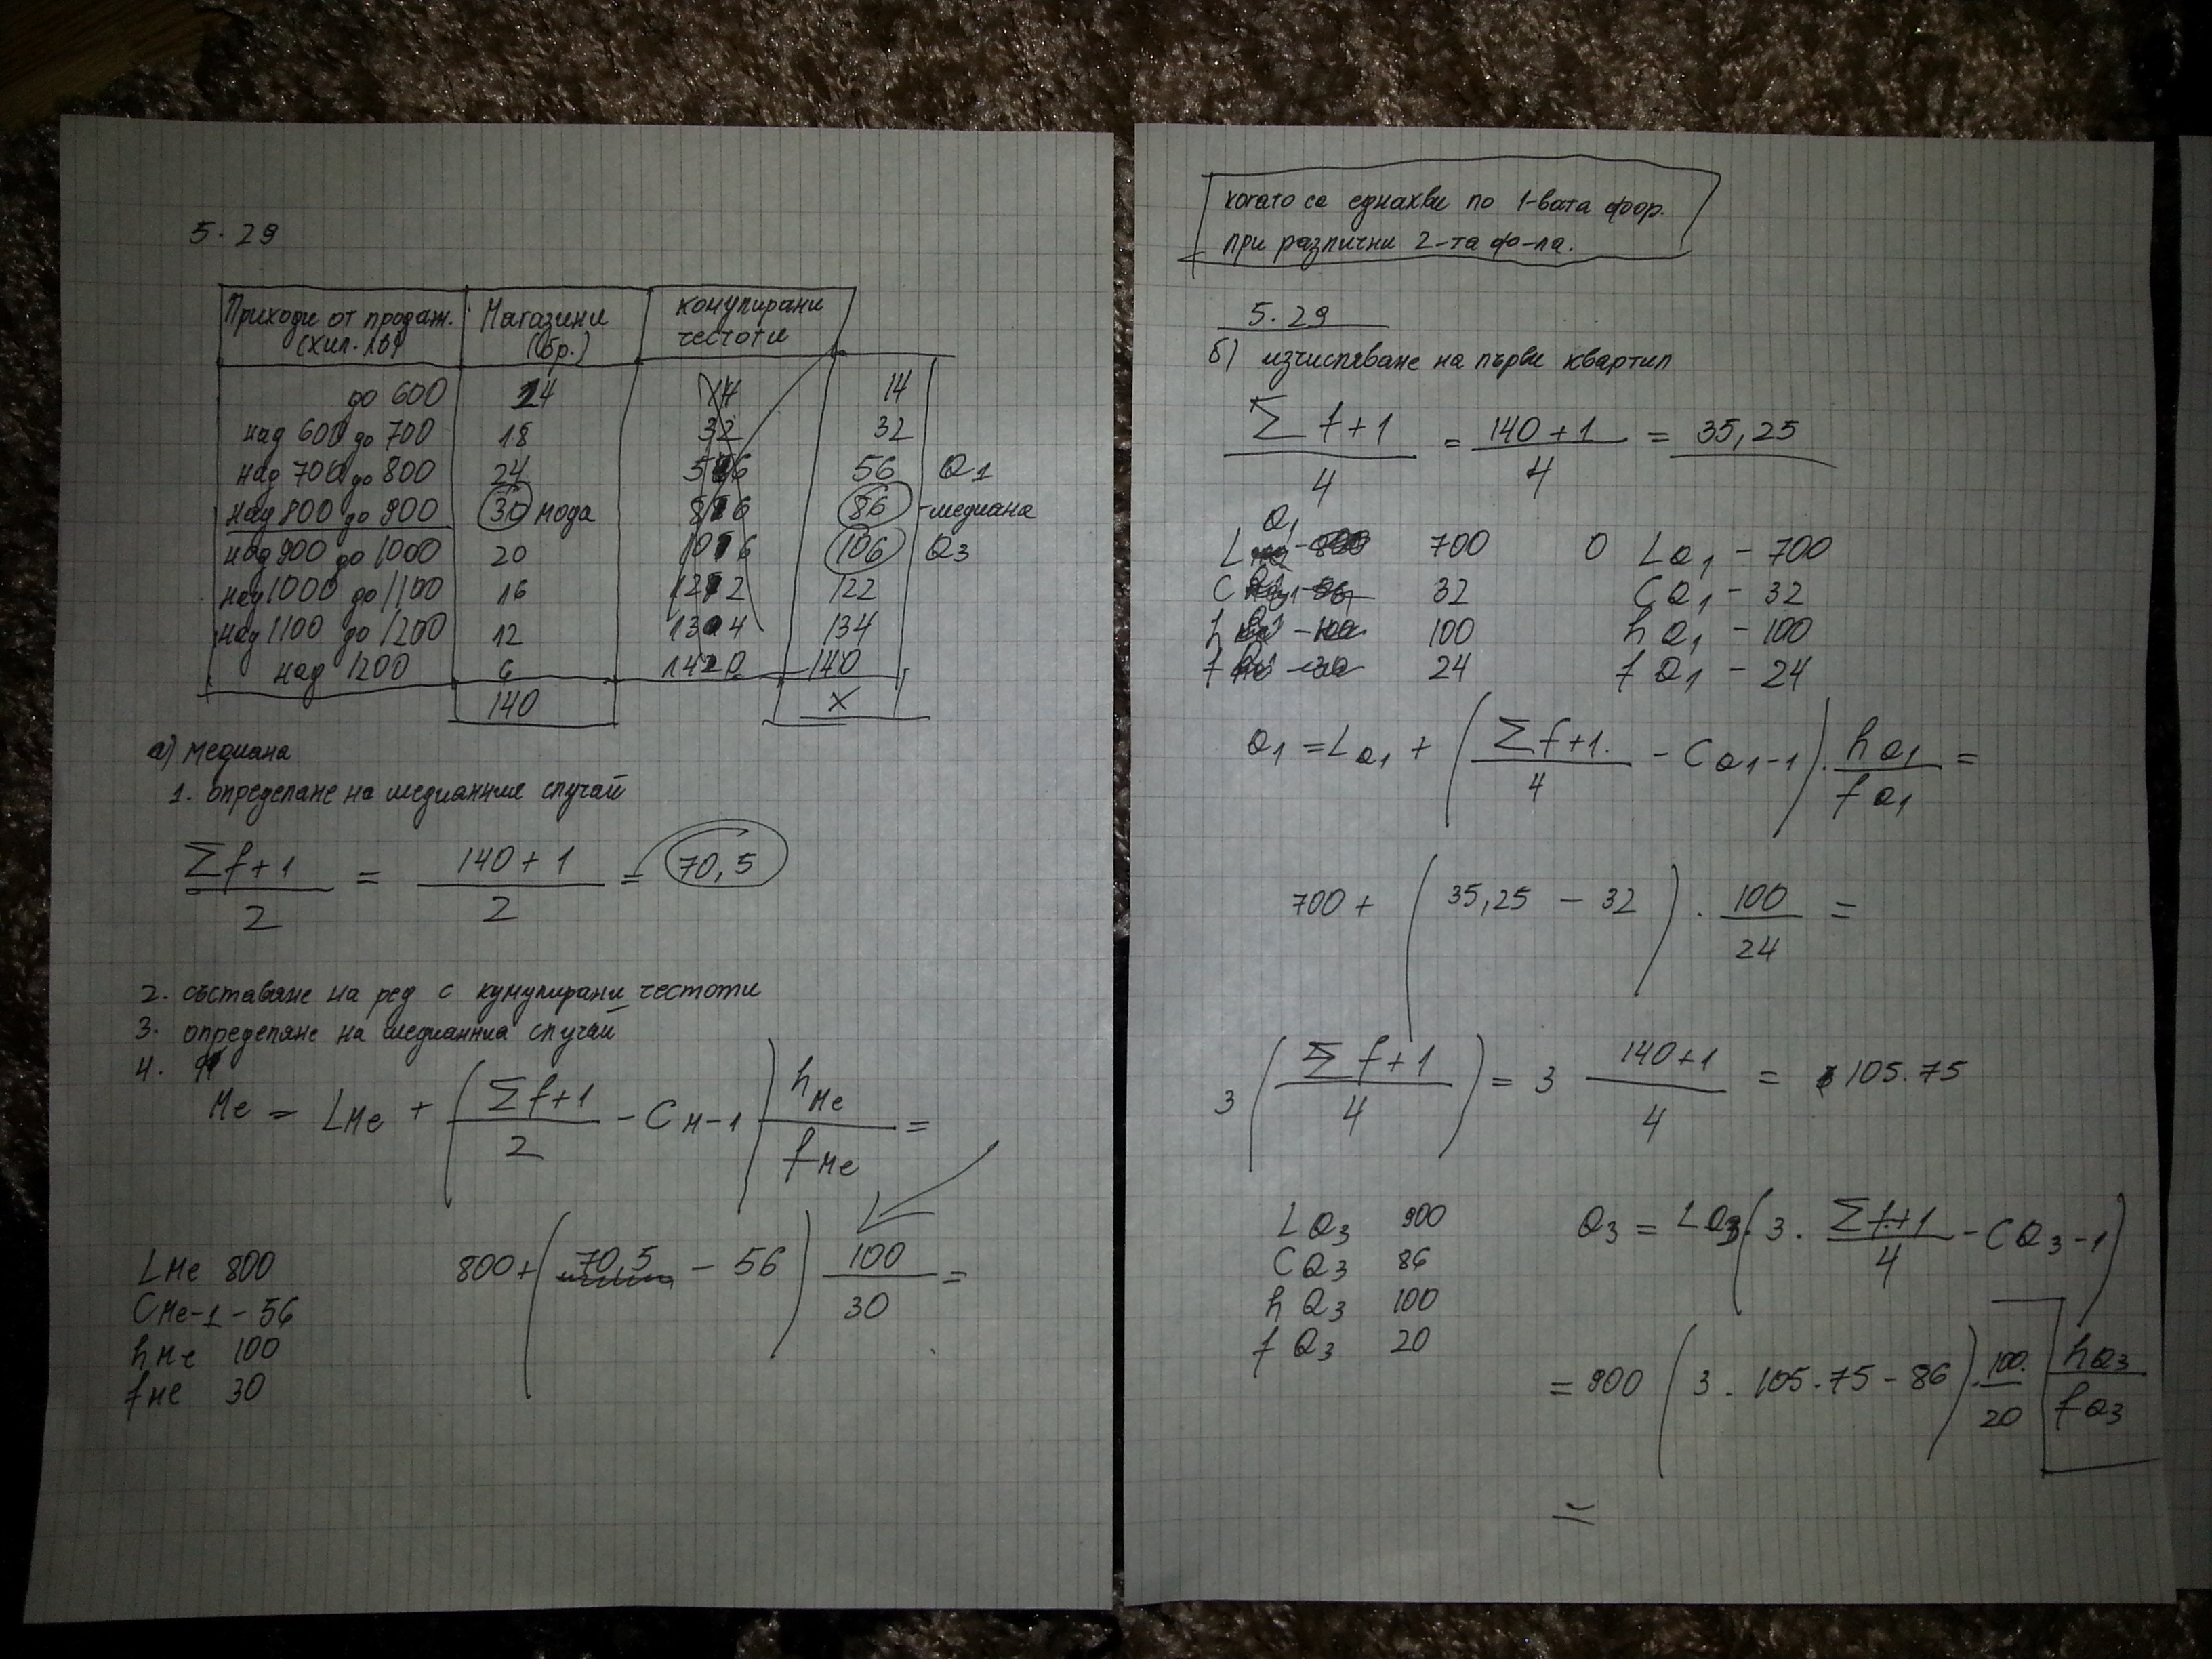 5.29
Приходи от продаж. (хил. лв) Магазини (бр.) комулирани честоти
до 600 14 14 14
над 600 до 700 18 32 32
над 700 до 800 24 56 56 Q1
над 800 до 900 30 мода 86 86 - медиана
над 900 до 1000 20 106 106 Q3
над 1000 до 1100 16 122 122
над 1100 до 1200 12 134 134
над 1200 6 140 140
140 x
а) медиана
1. определане на медианния случай
Σf+1 / 2 = 140+1 / 2 = 70,5
2. съставяне на ред с кумулирани честоти
3. определяне на медианния случай
4.
Me = LMe + (Σf+1 / 2 - CM-1) hMe / fMe =
LMe 800
CMe-1 - 56
hMe 100
fMe 30
800+ (70,5 - 56) 100 / 30 =
когато са еднакви по 1-вата фор.
при различни 2-та ф-ла.
5.29
б) изчисляване на първи квартил
Σf+1 / 4 = 140+1 / 4 = 35,25
L Q1 700 0 LQ1 - 700
C 32 CQ1 - 32
h 100 hQ1 - 100
f 24 fQ1 - 24
Q1 = LQ1 + (Σf+1. / 4 - CQ1-1) . hQ1 / fQ1 =
700 + (35,25 - 32) . 100 / 24 =
3 (Σf+1 / 4) = 3 140+1 / 4 = 105.75
LQ3 900
CQ3 86
hQ3 100
fQ3 20
Q3 = LQ3 (3. Σf+1 / 4 - CQ3-1) hQ3 / fQ3
= 900 (3. 105.75 - 86) . 100. / 20
=